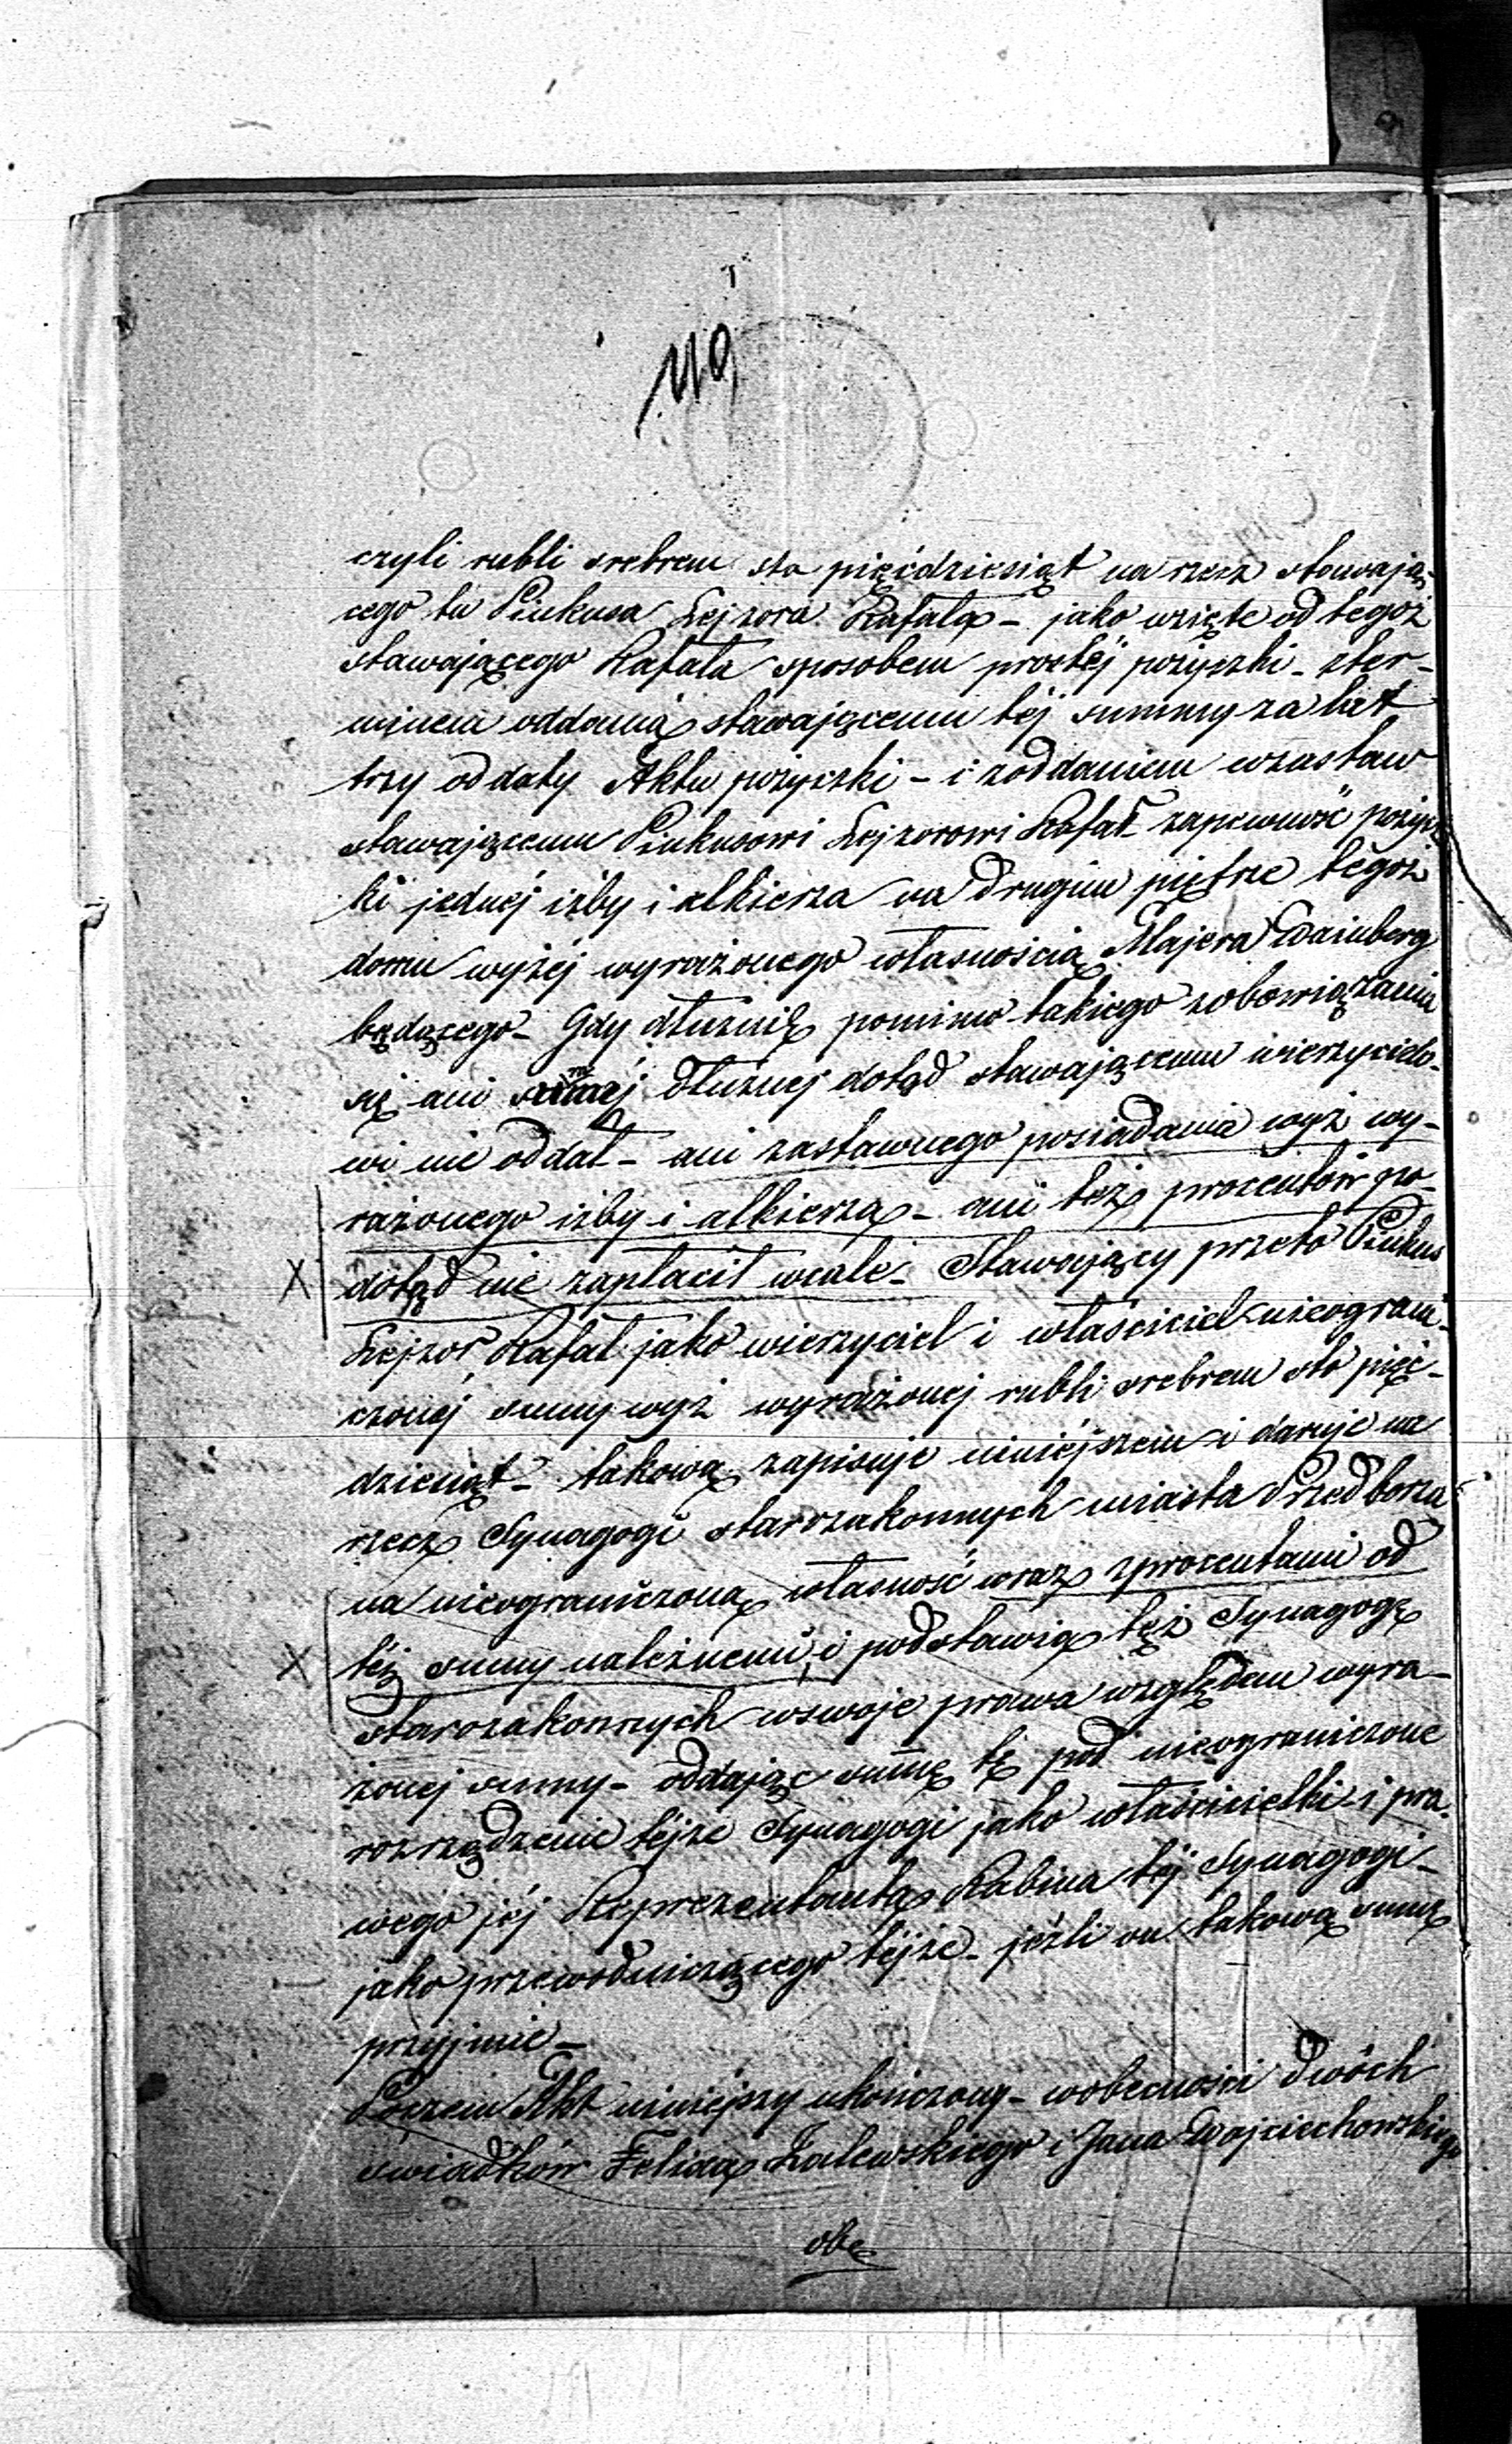 119
czyli rubli srebrem sto pięćdziesiąt na rzecz stawają-
cego tu Pinkusa Lejzora Rafała - jako wzięte od tegoż
stawającego Rafała sposobem prostéj pożyczki - zter-
minem oddania stawającemu téj summy za lat
trzy od daty Aktu pożyczki - i zoddaniem wzastaw
stawającemu Pinkusowi Lejzorowi Rafał zapewność pożycz
ki jednéj izby i alkierza na drugim piętrze tegoż
domu wyżéj wyrażonego własnością Majera Wainberg
będącego - Gdy dłużnik pomimo takiego zobowiązania
się ani samej dłużnej dotąd stawającemu wierzycielo-
wi nie oddał - ani zastawnego posiadania wyż wy-
rażonego izby i alkierza - ani też procentów po-
X dotąd nie zapłacił wcale - Stawający przeto Pinkus
Lejzor Rafał jako wierzyciel i właściciel nieograni-
czonéj sumy wyż wyrażonej rubli srebrem sto pięć-
dziesiąt - takową zapisuje niniejszem i daruje na
rzecz Synagogi starozakonnych miasta Przedborza
na nieograniczoną własność wraz zprocentami od
X téj sumy należnemi, i podstawia też Synagogę
starozakonnych wswoje prawa względem wyra-
żonej sumy - oddając summę tę pod nieograniczone
rozrządzenie téjże Synagogi jako właścicielki i pra-
wego jéj Reprezentanta Rabina téj Synagogi -
jako przewodniczącego téjże - jeźli on takową sumę
przyjmie -
Poczem Akt niniejszy ukończony - wobecności dwóch
świadków Felixa Zalewskiego i Jana Wojciechowskiego
obe